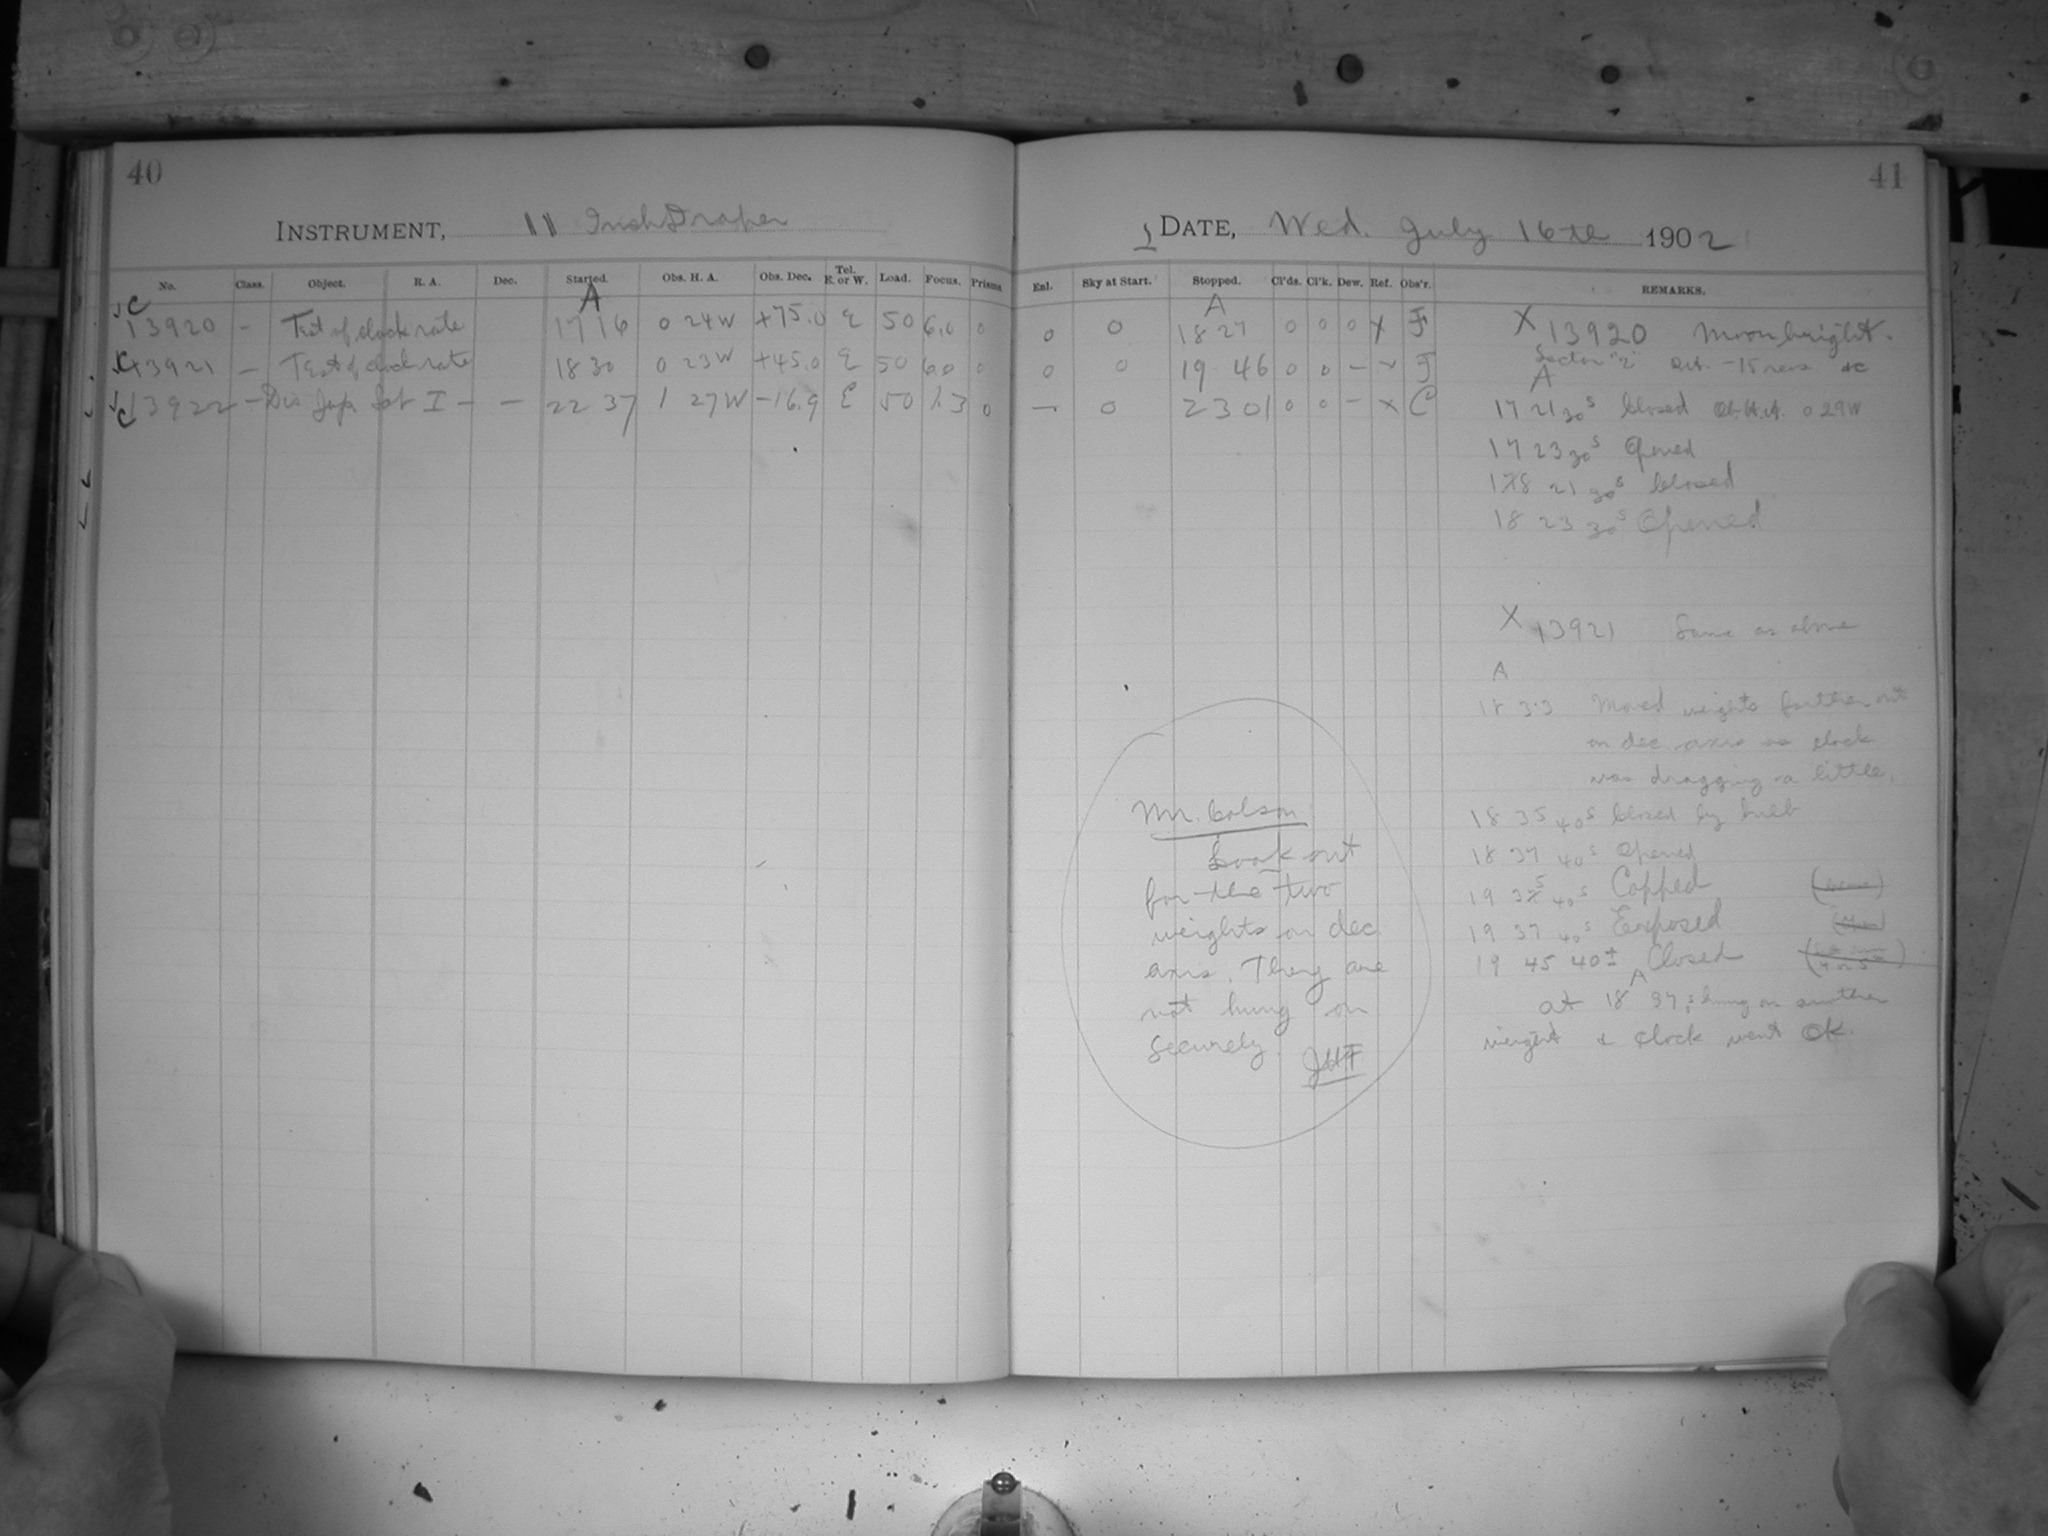 40
INSTRUMENT, 11 Inch Draper
No. Class. Object. R. A. Dec. Started. Obs. H. A. Obs. Dec. Tel. E. or W. Load. Focus. Prisms
A
C 13920 - Test of clock rate 17 16 0 24 W +75.0 E 50 6.0 0
C 13921 - Test of clock rate 18 30 0 23 W +45.0 E 50 6.0 0
C 13922 - Dis I - - 22 37 1 27 W -16.9 E 50 0
41
DATE, Wed. July 16th 1902
Enl. Sky at Start. Stopped. Cl'ds. Cl'k. Dew. Ref. Obs'r. REMARKS.
A
0 0 18 27 0 0 0 X F
0 0 19 46 0 0 - - F
- 0 23 01 0 0 - X C
X 13920 Moon bright.
Sector "2" -15 revs
A
17 21 30s Closed Ob. H.A. 0 29 W
17 23 30s Opened
18 21 30s Closed
18 23 30s Opened
X 13921 Same as above
A
18 33 Moved weights farther out
on dec axis as clock
was dragging a little.
18 35 40s Closed by bulb
18 37 40s Opened
19 35 40s Capped
19 37 40s Exposed
19 45 40± Closed
A
at 18 37, hung on another
weight & clock went OK.
Mr. Colson
Look out
for the two
weights on dec
axis. They are
not hung on
securely.
JHF